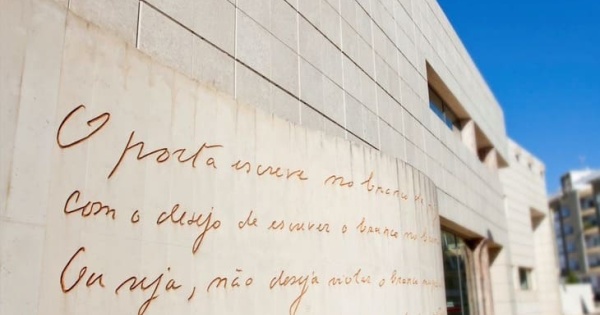 O poeta escreve no branco
com o desejo de escrever o branco no
Ou seja, não deseja violar o branco